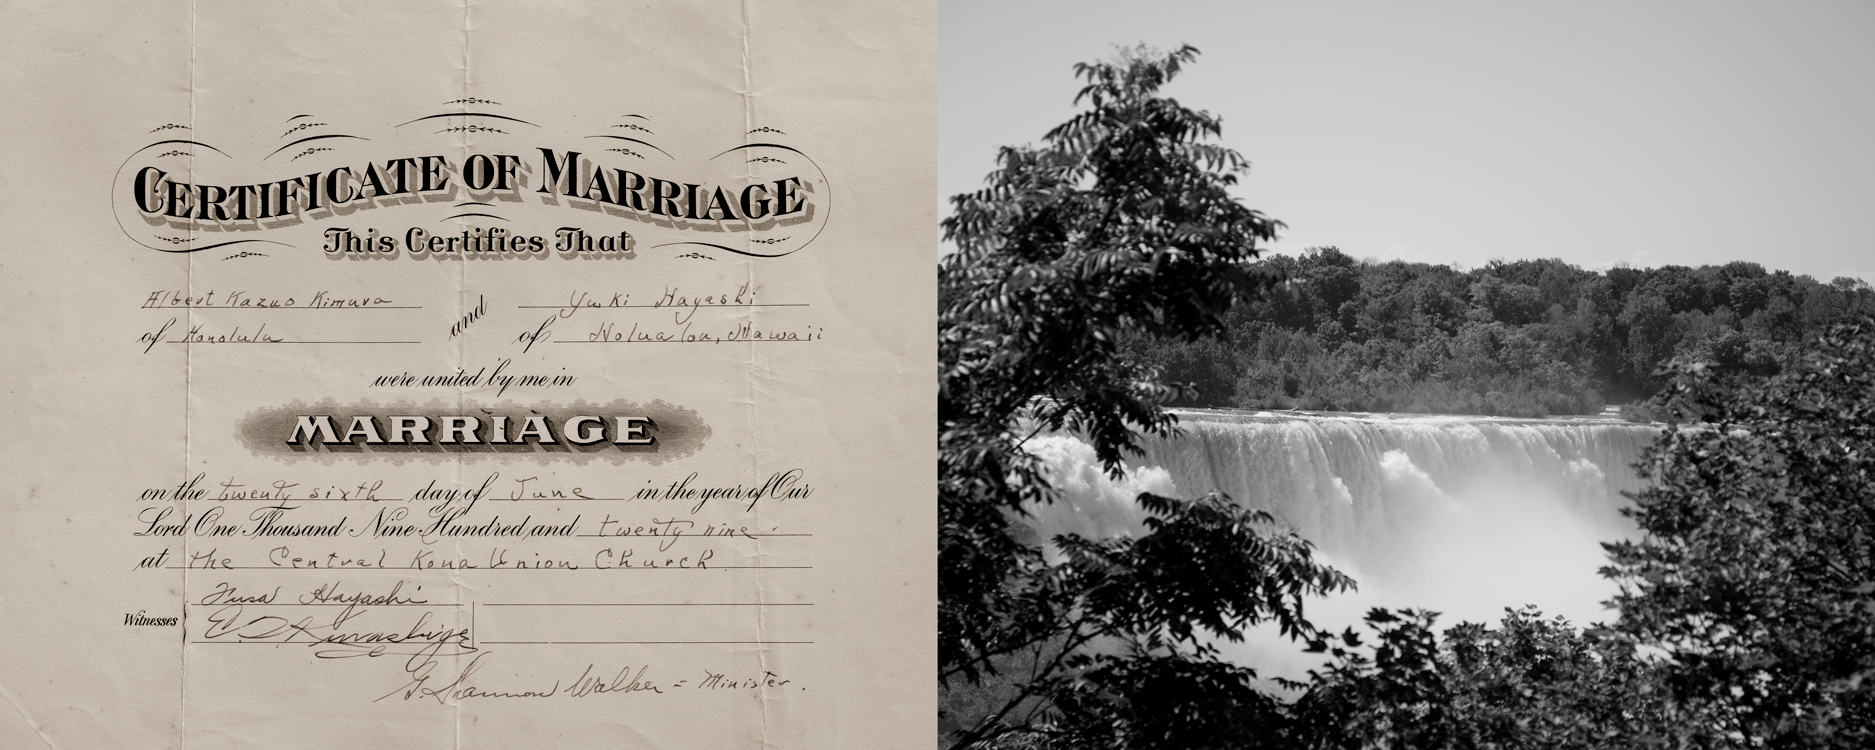 CERTIFICATE OF MARRIAGE
This Certifies That
Albert Kazuo Kimura and Yuki Hayashi
of Honolulu of Holualoa, Hawaii
were united by me in
MARRIAGE
on the twenty sixth day of June in the year of Our
Lord One Thousand Nine Hundred and twenty nine.
at the Central Kona Union Church
Fusa Hayashi
Witnesses
G. Shannon Walker = Minister.